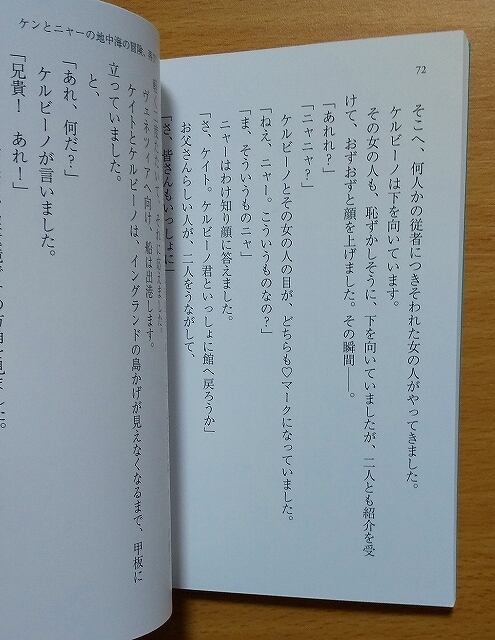 72
そこへ、何人かの従者につきそわれた女の人がやってきました。
ケルビーノは下を向いています。
その女の人も、恥ずかしそうに、下を向いていましたが、二人とも紹介を受
けて、おずおずと顔を上げました。その瞬間――。
「あれれ？」
「ニャニャ？」
ケルビーノとその女の人の目が、どちらも♡マークになっていました。
「ねえ、ニャー。こういうものなの？」
「ま、そういうものニャ」
ニャーはわけ知り顔に答えました。
「さ、ケイト。ケルビーノ君といっしょに館へ戻ろうか」
お父さんらしい人が、二人をうながして、
「さ、皆さんもいっしょに」
ケンとニャーの地中海の冒険、
それに応えました。
ヴェネツィアへ向け、船は出港します。
ケイトとケルビーノは、イングランドの島かげが見えなくなるまで、甲板に
立っていました。
と、
「あれ、何だ？」
ケルビーノが言いました。
「兄貴！　あれ！」